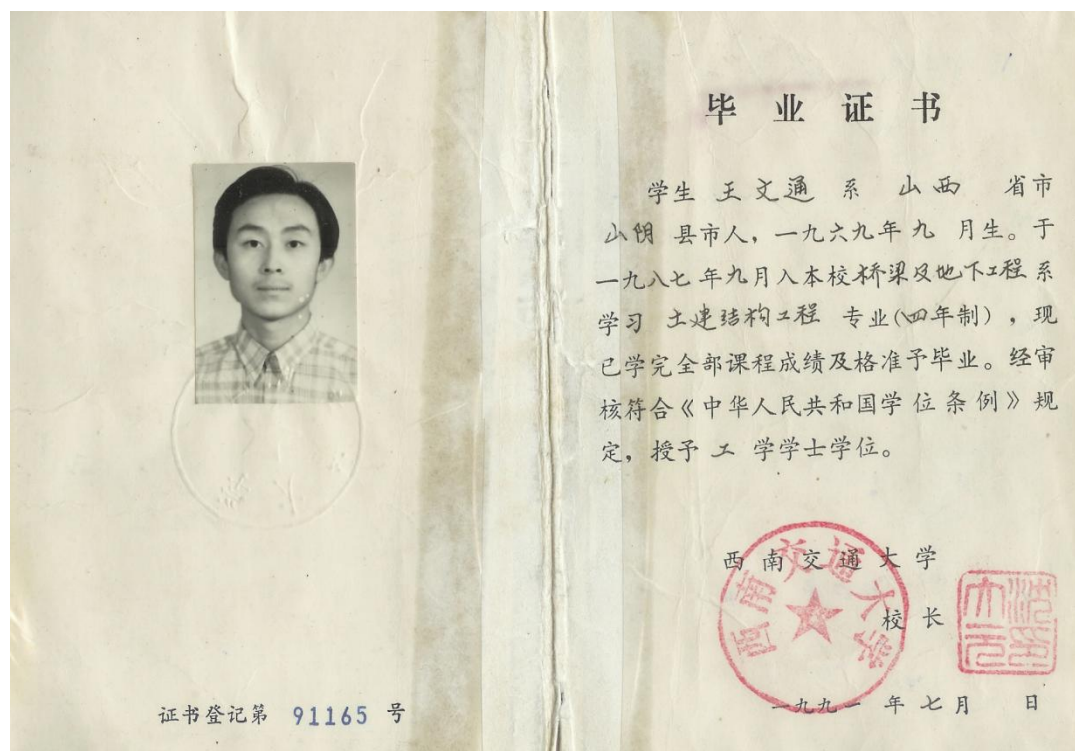 证书登记第 91165 号
毕业证书
学生 王文通 系 山西 省市
山阴 县市人，一九六九年 九 月生。于
一九八七年九月入本校桥梁及地下工程系
学习 土建结构工程 专业(四年制)，现
已学完全部课程成绩及格准予毕业。经审
核符合《中华人民共和国学位条例》规
定，授予 工 学学士学位。
西南交通大学
校长
西南交通大学
沈大元印
一九九一 年 七月 日